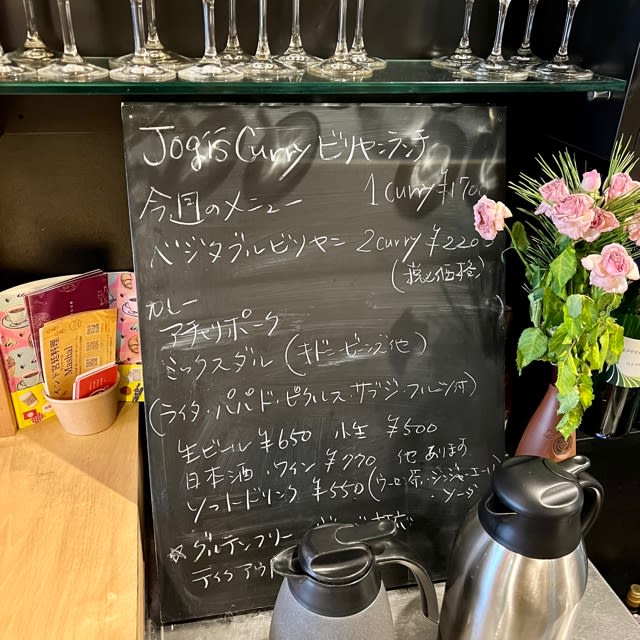 Jog's Curry ビリヤニランチ
今週のメニュー 1curry ¥170
ベジタブルビリヤニ 2curry ¥220
(税込価格)
カレー
アチャリポーク
ミックスダル (キドニービーンズ他)
(ライタ・パパド・ピクルス・サブジ・フルーツ付)
生ビール ¥650 小生 ¥500
日本酒・ワイン ¥770 他あります
ソフトドリンク ¥550 (ウーロン茶・ジンジャーエール
・ソーダ
☆グルテンフリー 対応
テイクアウト
インド宮廷料理
Mashal